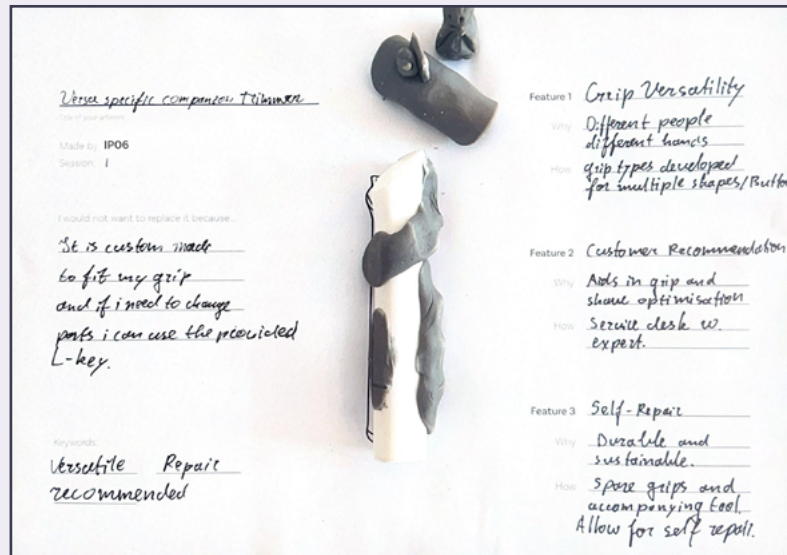 Versa specific companion trimmer
Title of your artefact
Made by IP06
Session: 1
I would not want to replace it because...
It is custom made
to fit my grip
and if i need to change
parts i can use the provided
L-key.
Keywords:
Versatile Repair
recommended
Feature 1 Grip Versatility
Why Different people
different hands
How grip types developed
for multiple shapes/Butto
Feature 2 Customer Recommendation
Why Aids in grip and
shave optimisation
How Service desk w.
expert.
Feature 3 Self-Repair
Why Durable and
sustainable.
How Spare grips and
accompanying tool.
Allow for self repair.